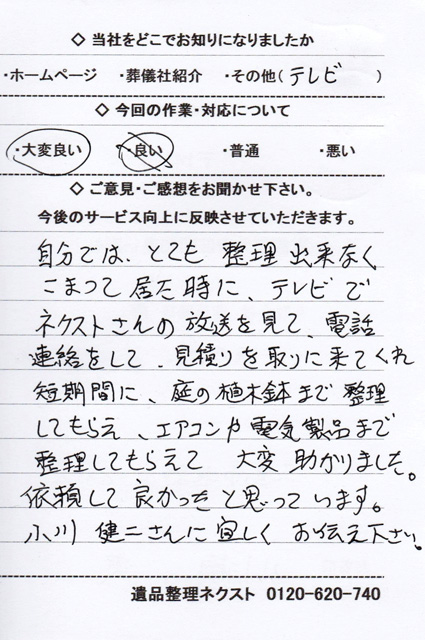 ◇ 当社をどこでお知りになりましたか
・ホームページ ・葬儀社紹介 ・その他( テレビ )
◇ 今回の作業・対応について
・大変良い ・良い ・普通 ・悪い
◇ ご意見・ご感想をお聞かせ下さい。
今後のサービス向上に反映させていただきます。
自分では、とても 整理 出来なく
こまって 居た 時に、テレビ で
ネクストさんの 放送を見て、電話
連絡をして、見積りを取りに来てくれ
短期間に、庭の植木鉢まで 整理
してもらえ、エアコンや電気製品まで
整理してもらえて 大変 助かりました。
依頼して 良かったと思って います。
小川 健二さんに宜しく お伝え下さい。
遺品整理ネクスト 0120-620-740